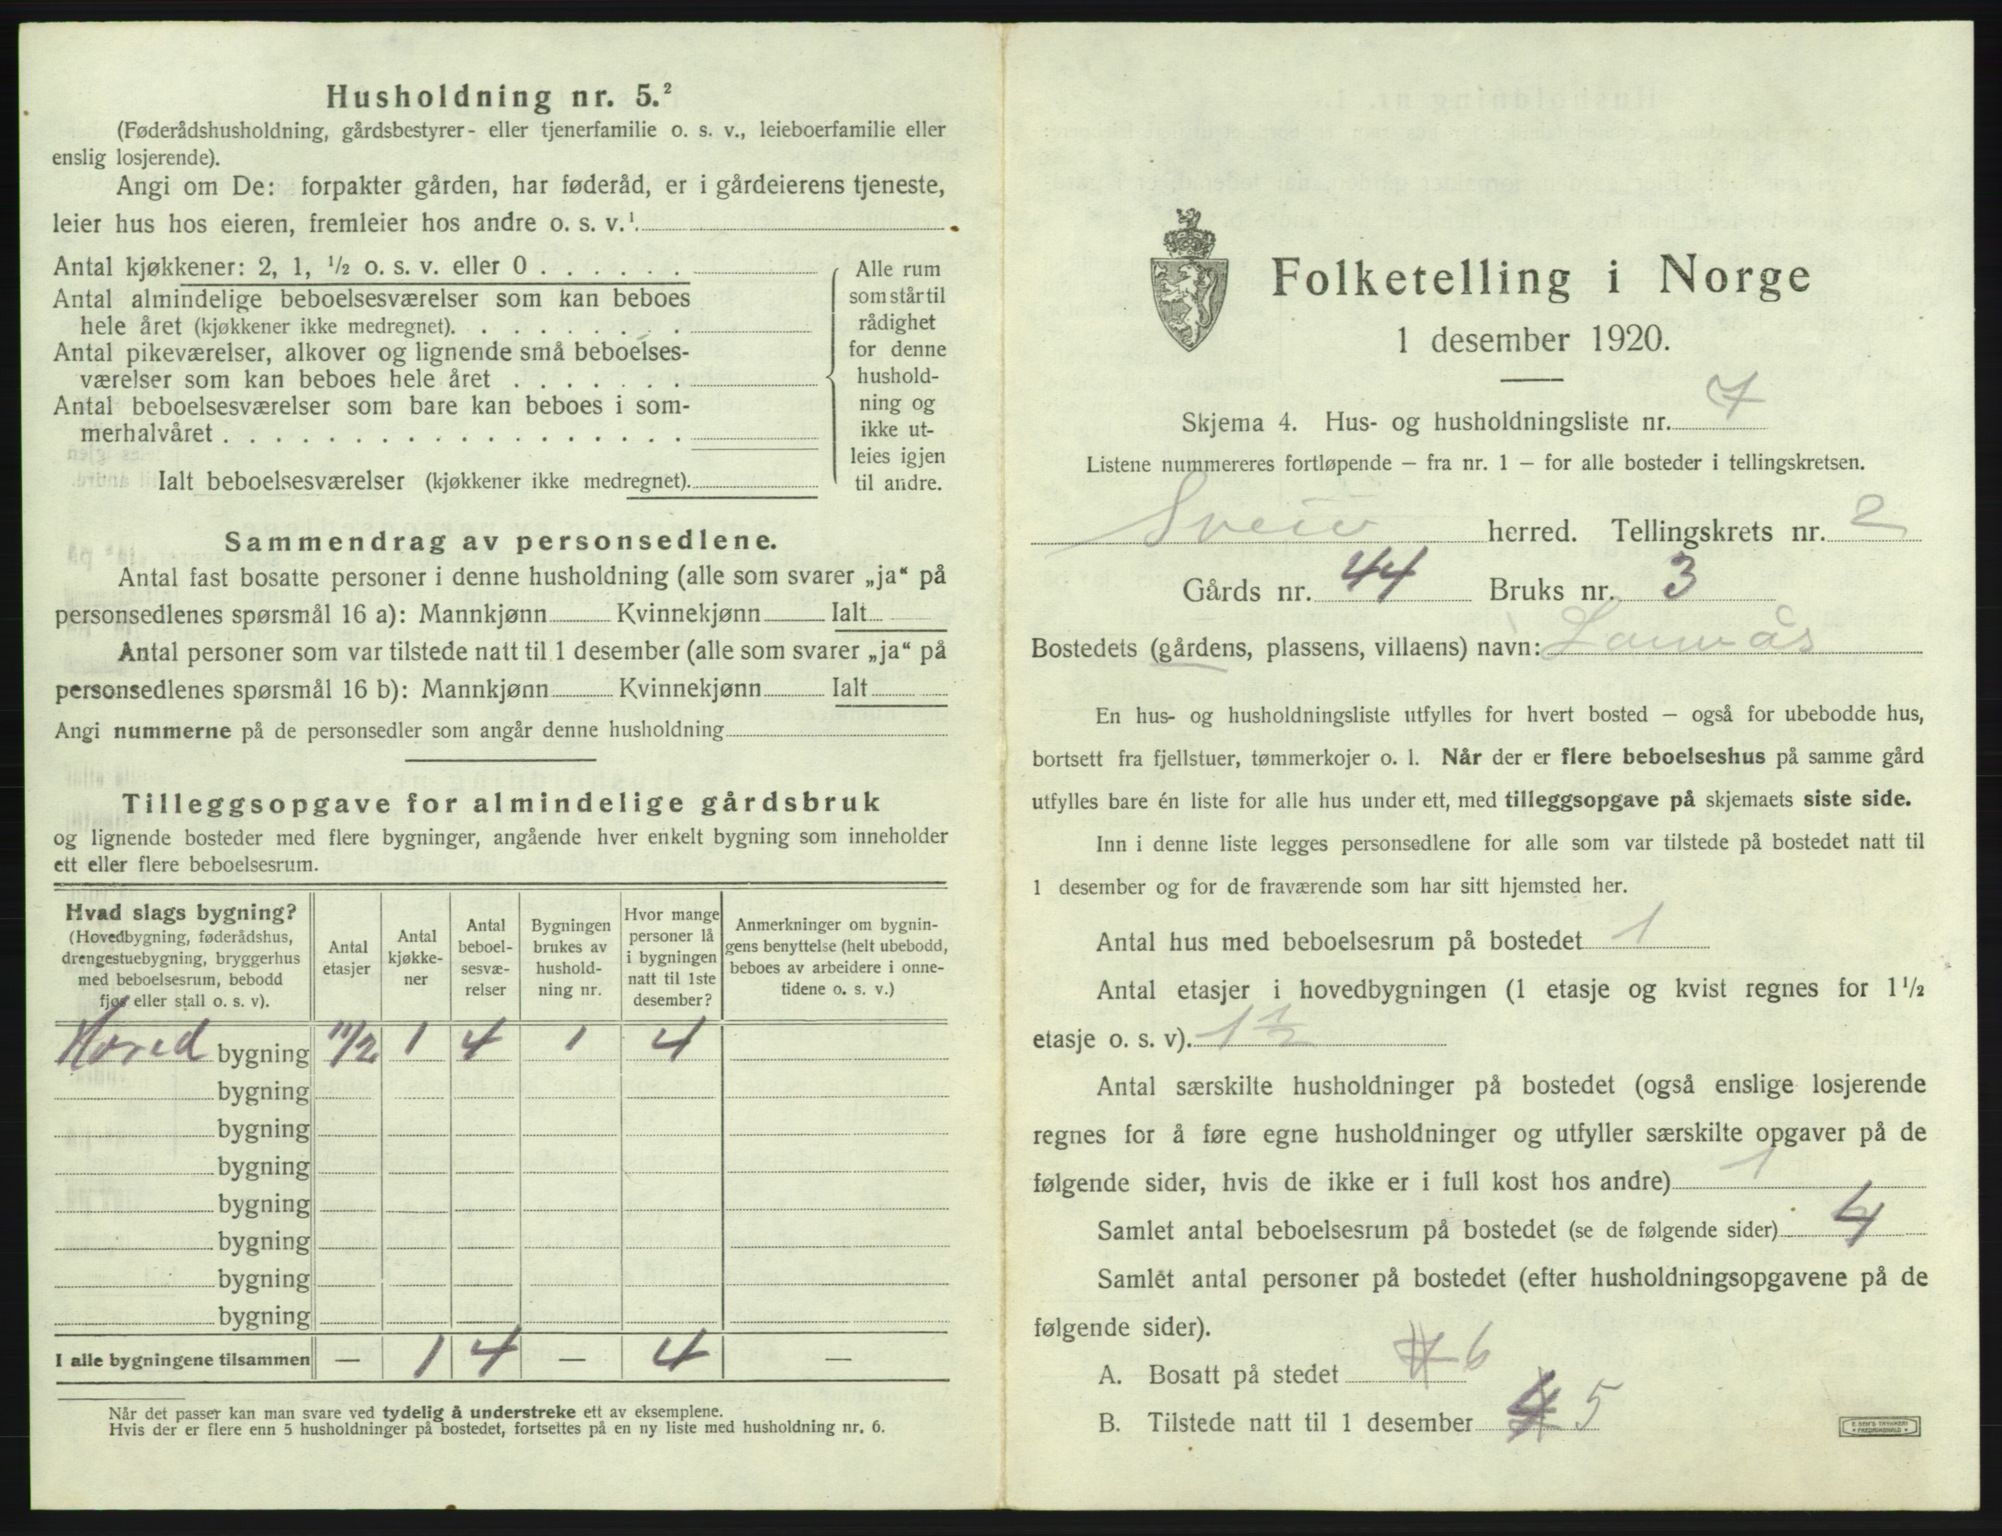 Husholdning nr. 5.²
(Føderådshusholdning, gårdsbestyrer- eller tjenerfamilie o. s. v., leieboerfamilie eller
enslig losjerende).
Angi om De: forpakter gården, har føderåd, er i gårdeierens tjeneste,
leier hus hos eieren, fremleier hos andre o. s. v.¹.
Antal kjøkkener: 2, 1, ½ o. s. v. eller 0 . . . . . .
Antal almindelige beboelsesværelser som kan beboes
hele året (kjøkkener ikke medregnet). . . . . . . . .
Antal pikeværelser, alkover og lignende små beboelses-
værelser som kan beboes hele året . . . . . . .
Antal beboelsesværelser som bare kan beboes i som-
merhalvåret . . . . . . . . . . . . . . . . . .
Ialt beboelsesværelser (kjøkkener ikke medregnet).
Alle rum
som står til
rådighet
for denne
hushold-
ning og
ikke ut-
leies igjen
til andre.
Sammendrag av personsedlene.
Antal fast bosatte personer i denne husholdning (alle som svarer „ja“ på
personsedlenes spørsmål 16 a): Mannkjønn Kvinnekjønn Ialt
Antal personer som var tilstede natt til 1 desember (alle som svarer „ja“ på
personsedlenes spørsmål 16 b): Mannkjønn Kvinnekjønn Ialt
Angi nummerne på de personsedler som angår denne husholdning
Tilleggsopgave for almindelige gårdsbruk
og lignende bosteder med flere bygninger, angående hver enkelt bygning som inneholder
ett eller flere beboelsesrum.
Hvad slags bygning?
(Hovedbygning, føderådshus,
drengestuebygning, bryggerhus
med beboelsesrum, bebodd
fjøs eller stall o. s. v).
Antal
etasjer
Antal
kjøkke-
ner
Antal
beboel-
sesvæ-
relser
Bygningen
brukes av
hushold-
ning nr.
Hvor mange
personer lå
i bygningen
natt til 1ste
desember?
Anmerkninger om bygnin-
gens benyttelse (helt ubebodd,
beboes av arbeidere i onne-
tidene o. s. v.)
Hoved bygning 1 1/2 1 4 1 4
bygning
bygning
bygning
bygning
bygning
bygning
bygning
I alle bygningene tilsammen — 1 4 — 4 —
Når det passer kan man svare ved tydelig å understreke ett av eksemplene.
Hvis der er flere enn 5 husholdninger på bostedet, fortsettes på en ny liste med husholdning nr. 6.
Folketelling i Norge
1 desember 1920.
Skjema 4. Hus- og husholdningsliste nr. 7
Listene nummereres fortløpende — fra nr. 1 — for alle bosteder i tellingskretsen.
Sveio herred. Tellingskrets nr. 2
Gårds nr. 44 Bruks nr. 3
Bostedets (gårdens, plassens, villaens) navn:
En hus- og husholdningsliste utfylles for hvert bosted — også for ubebodde hus,
bortsett fra fjellstuer, tømmerkojer o. l. Når der er flere beboelseshus på samme gård
utfylles bare én liste for alle hus under ett, med tilleggsopgave på skjemaets siste side.
Inn i denne liste legges personsedlene for alle som var tilstede på bostedet natt til
1 desember og for de fraværende som har sitt hjemsted her.
Antal hus med beboelsesrum på bostedet 1
Antal etasjer i hovedbygningen (1 etasje og kvist regnes for 1½
etasje o. s. v). 1½
Antal særskilte husholdninger på bostedet (også enslige losjerende
regnes for å føre egne husholdninger og utfyller særskilte opgaver på de
følgende sider, hvis de ikke er i full kost hos andre) 1
Samlet antal beboelsesrum på bostedet (se de følgende sider) 4
Samlet antal personer på bostedet (efter husholdningsopgavene på de
følgende sider).
A. Bosatt på stedet 6
B. Tilstede natt til 1 desember 5